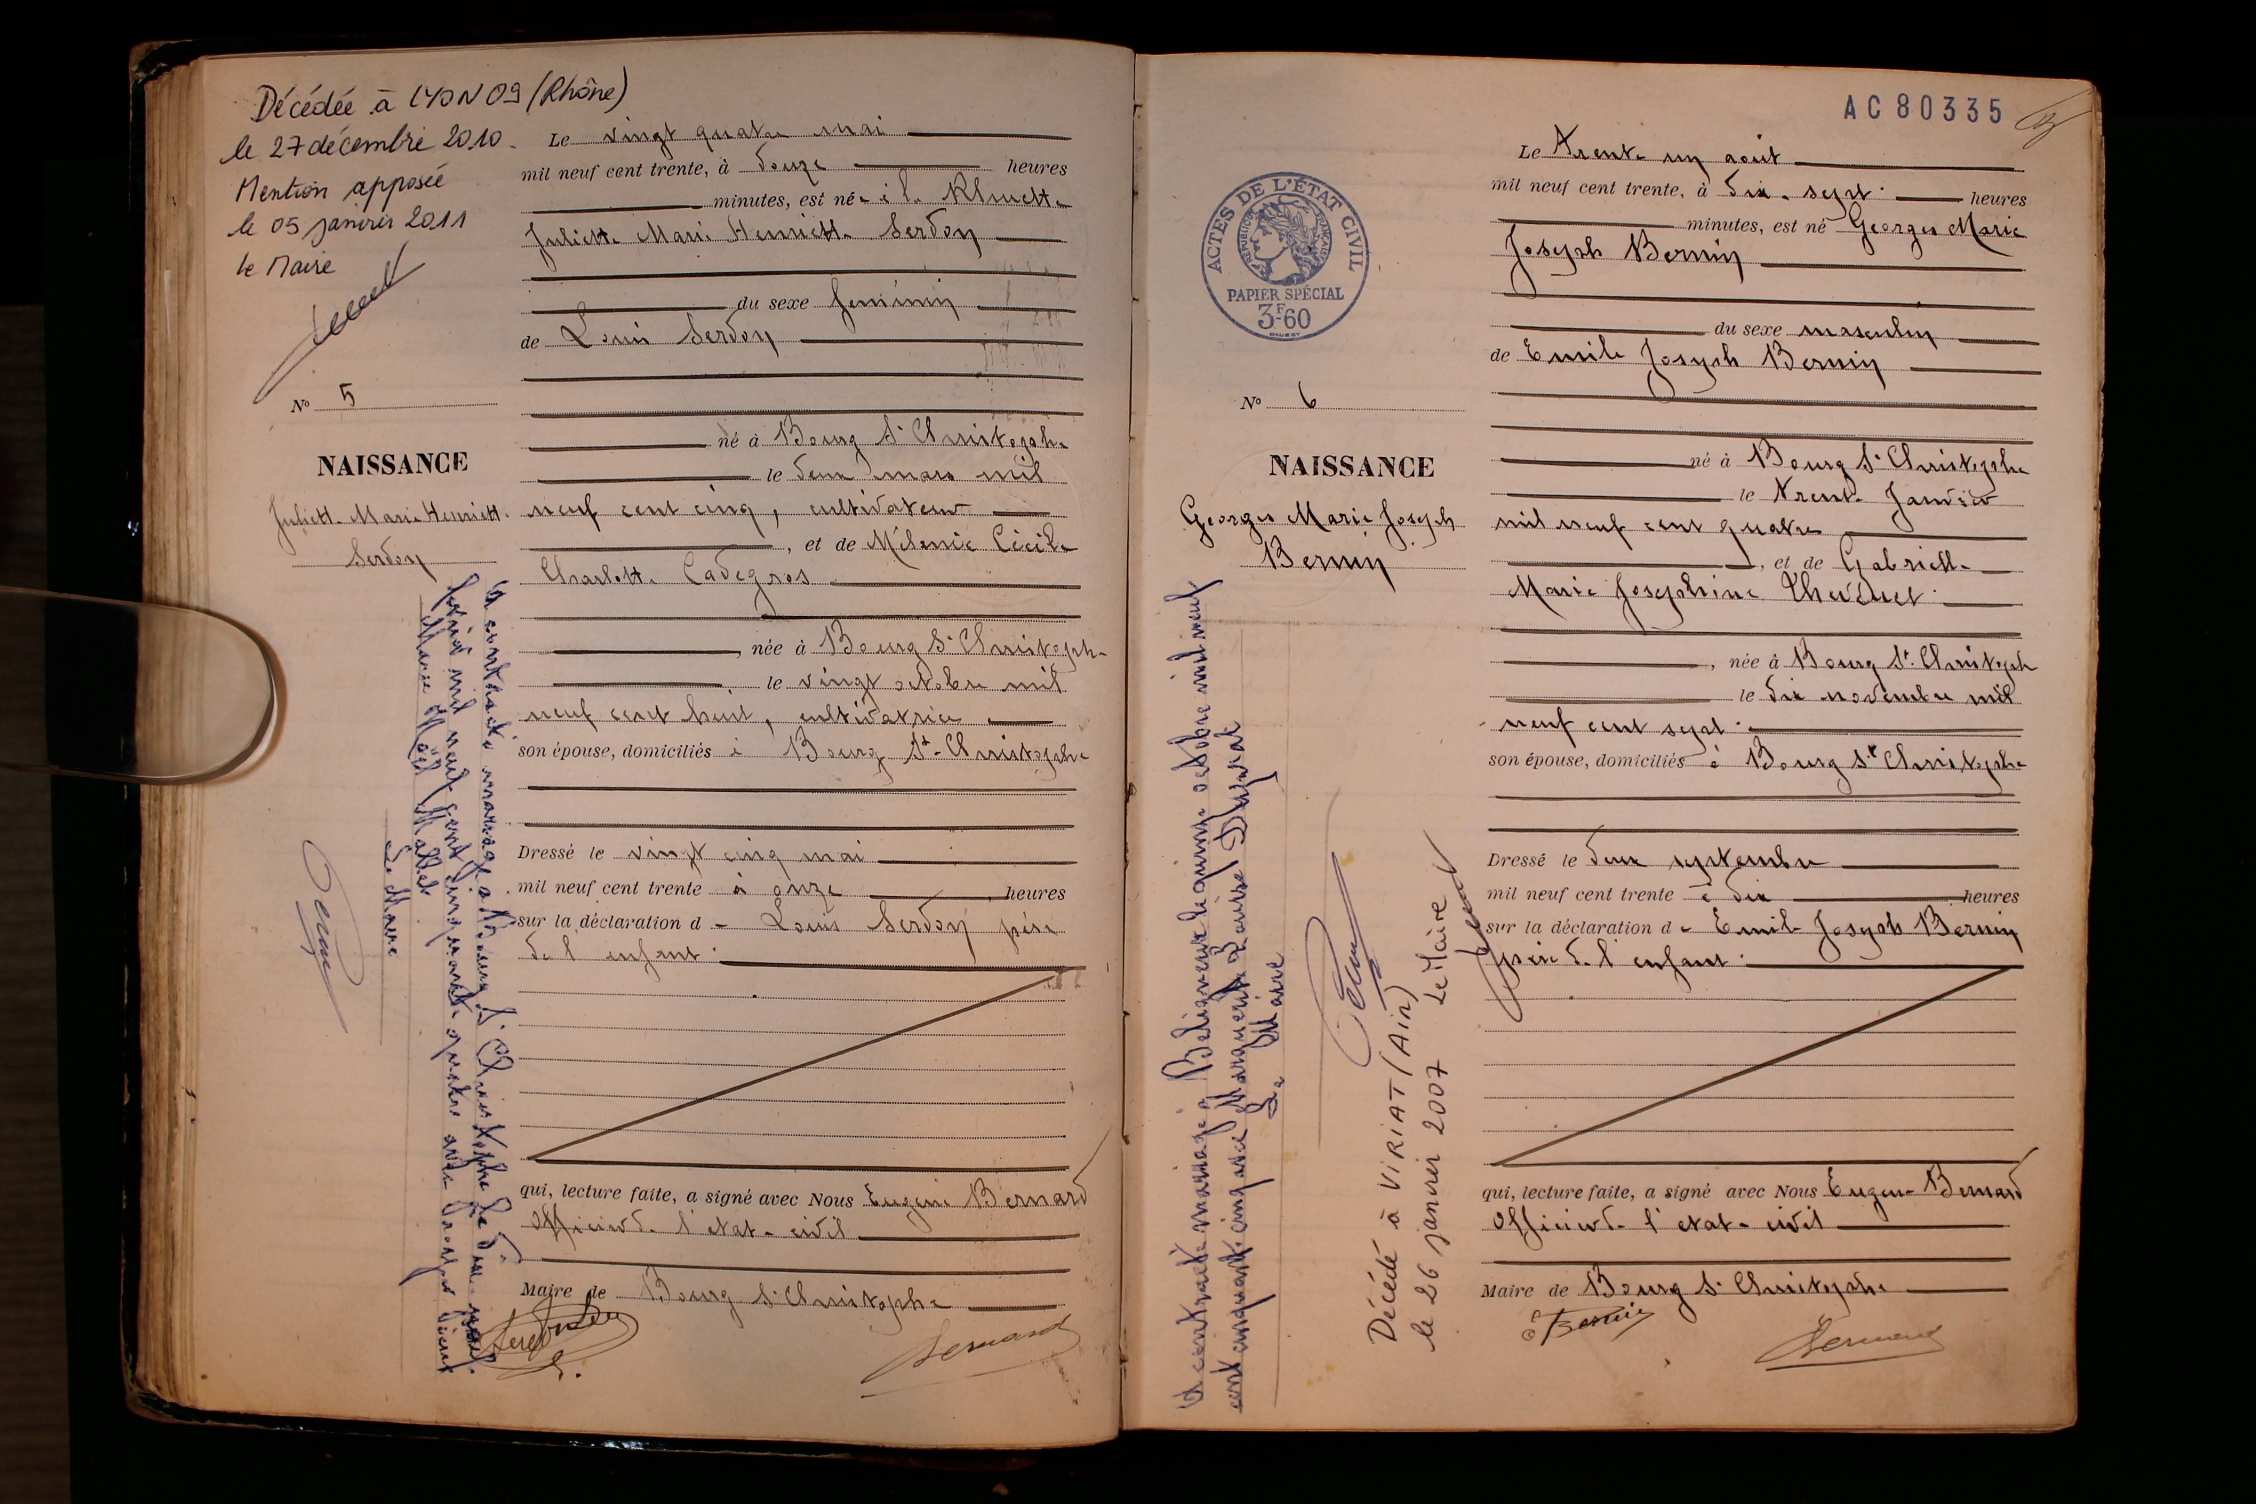 Décédée à LYON 09 (Rhône)
le 27 décembre 2010.
Mention apposée
le 05 janvier 2011
le Maire
N° 5
NAISSANCE
Juliette Marie Henriette
Serdon
Le vingt quatre mai
mil neuf cent trente, à douze heures
minutes, est née à la
Juliette Marie Henriette Serdon
du sexe féminin
de Louis Serdon
né à Bourg St Christophe
le deux mars mil
neuf cent cinq, cultivateur
, et de Mélanie Cécile
Charlotte Cadegros
, née à Bourg St Christophe
le vingt octobre mil
neuf cent huit, cultivatrice
son épouse, domiciliés à Bourg St-Christophe
Dressé le vingt cinq mai
mil neuf cent trente à onze heures
sur la déclaration de Louis Serdon père
de l'enfant
qui, lecture faite, a signé avec Nous Eugène Bernard
Officier de l'état-civil
Maire de Bourg St Christophe
Bernard
A contracté mariage à Bourg St Christophe le
février mil neuf cent cinquante quatre avec
Marie Noël Mallet
Le Maire
AC80335
ACTES DE L'ÉTAT CIVIL
RÉPUBLIQUE FRANÇAISE
PAPIER SPÉCIAL
3F.60
N° 6
NAISSANCE
Georges Marie Joseph
Bernin
Le trente un août
mil neuf cent trente, à dix-sept heures
minutes, est né Georges Marie
Joseph Bernin
du sexe masculin
de Emile Joseph Bernin
né à Bourg St Christophe
le trente Janvier
mil neuf cent quatre
, et de Gabrielle
Marie Joséphine Thévenet
, née à Bourg St. Christophe
le dix novembre mil
neuf cent sept
son épouse, domiciliés à Bourg St Christophe
Dressé le deux septembre
mil neuf cent trente à dix heures
sur la déclaration de Emile Joseph Bernin
père de l'enfant
qui, lecture faite, a signé avec Nous Eugène Bernard
Officier de l'état-civil
Maire de Bourg St Christophe
Bernin
Bernard
A contracté mariage à Béligneux le quinze octobre mil neuf
cent cinquante cinq avec Marguerite Louise Duprat
Le Maire
Décédé à VIRIAT (Ain)
le 26 janvier 2007 Le Maire